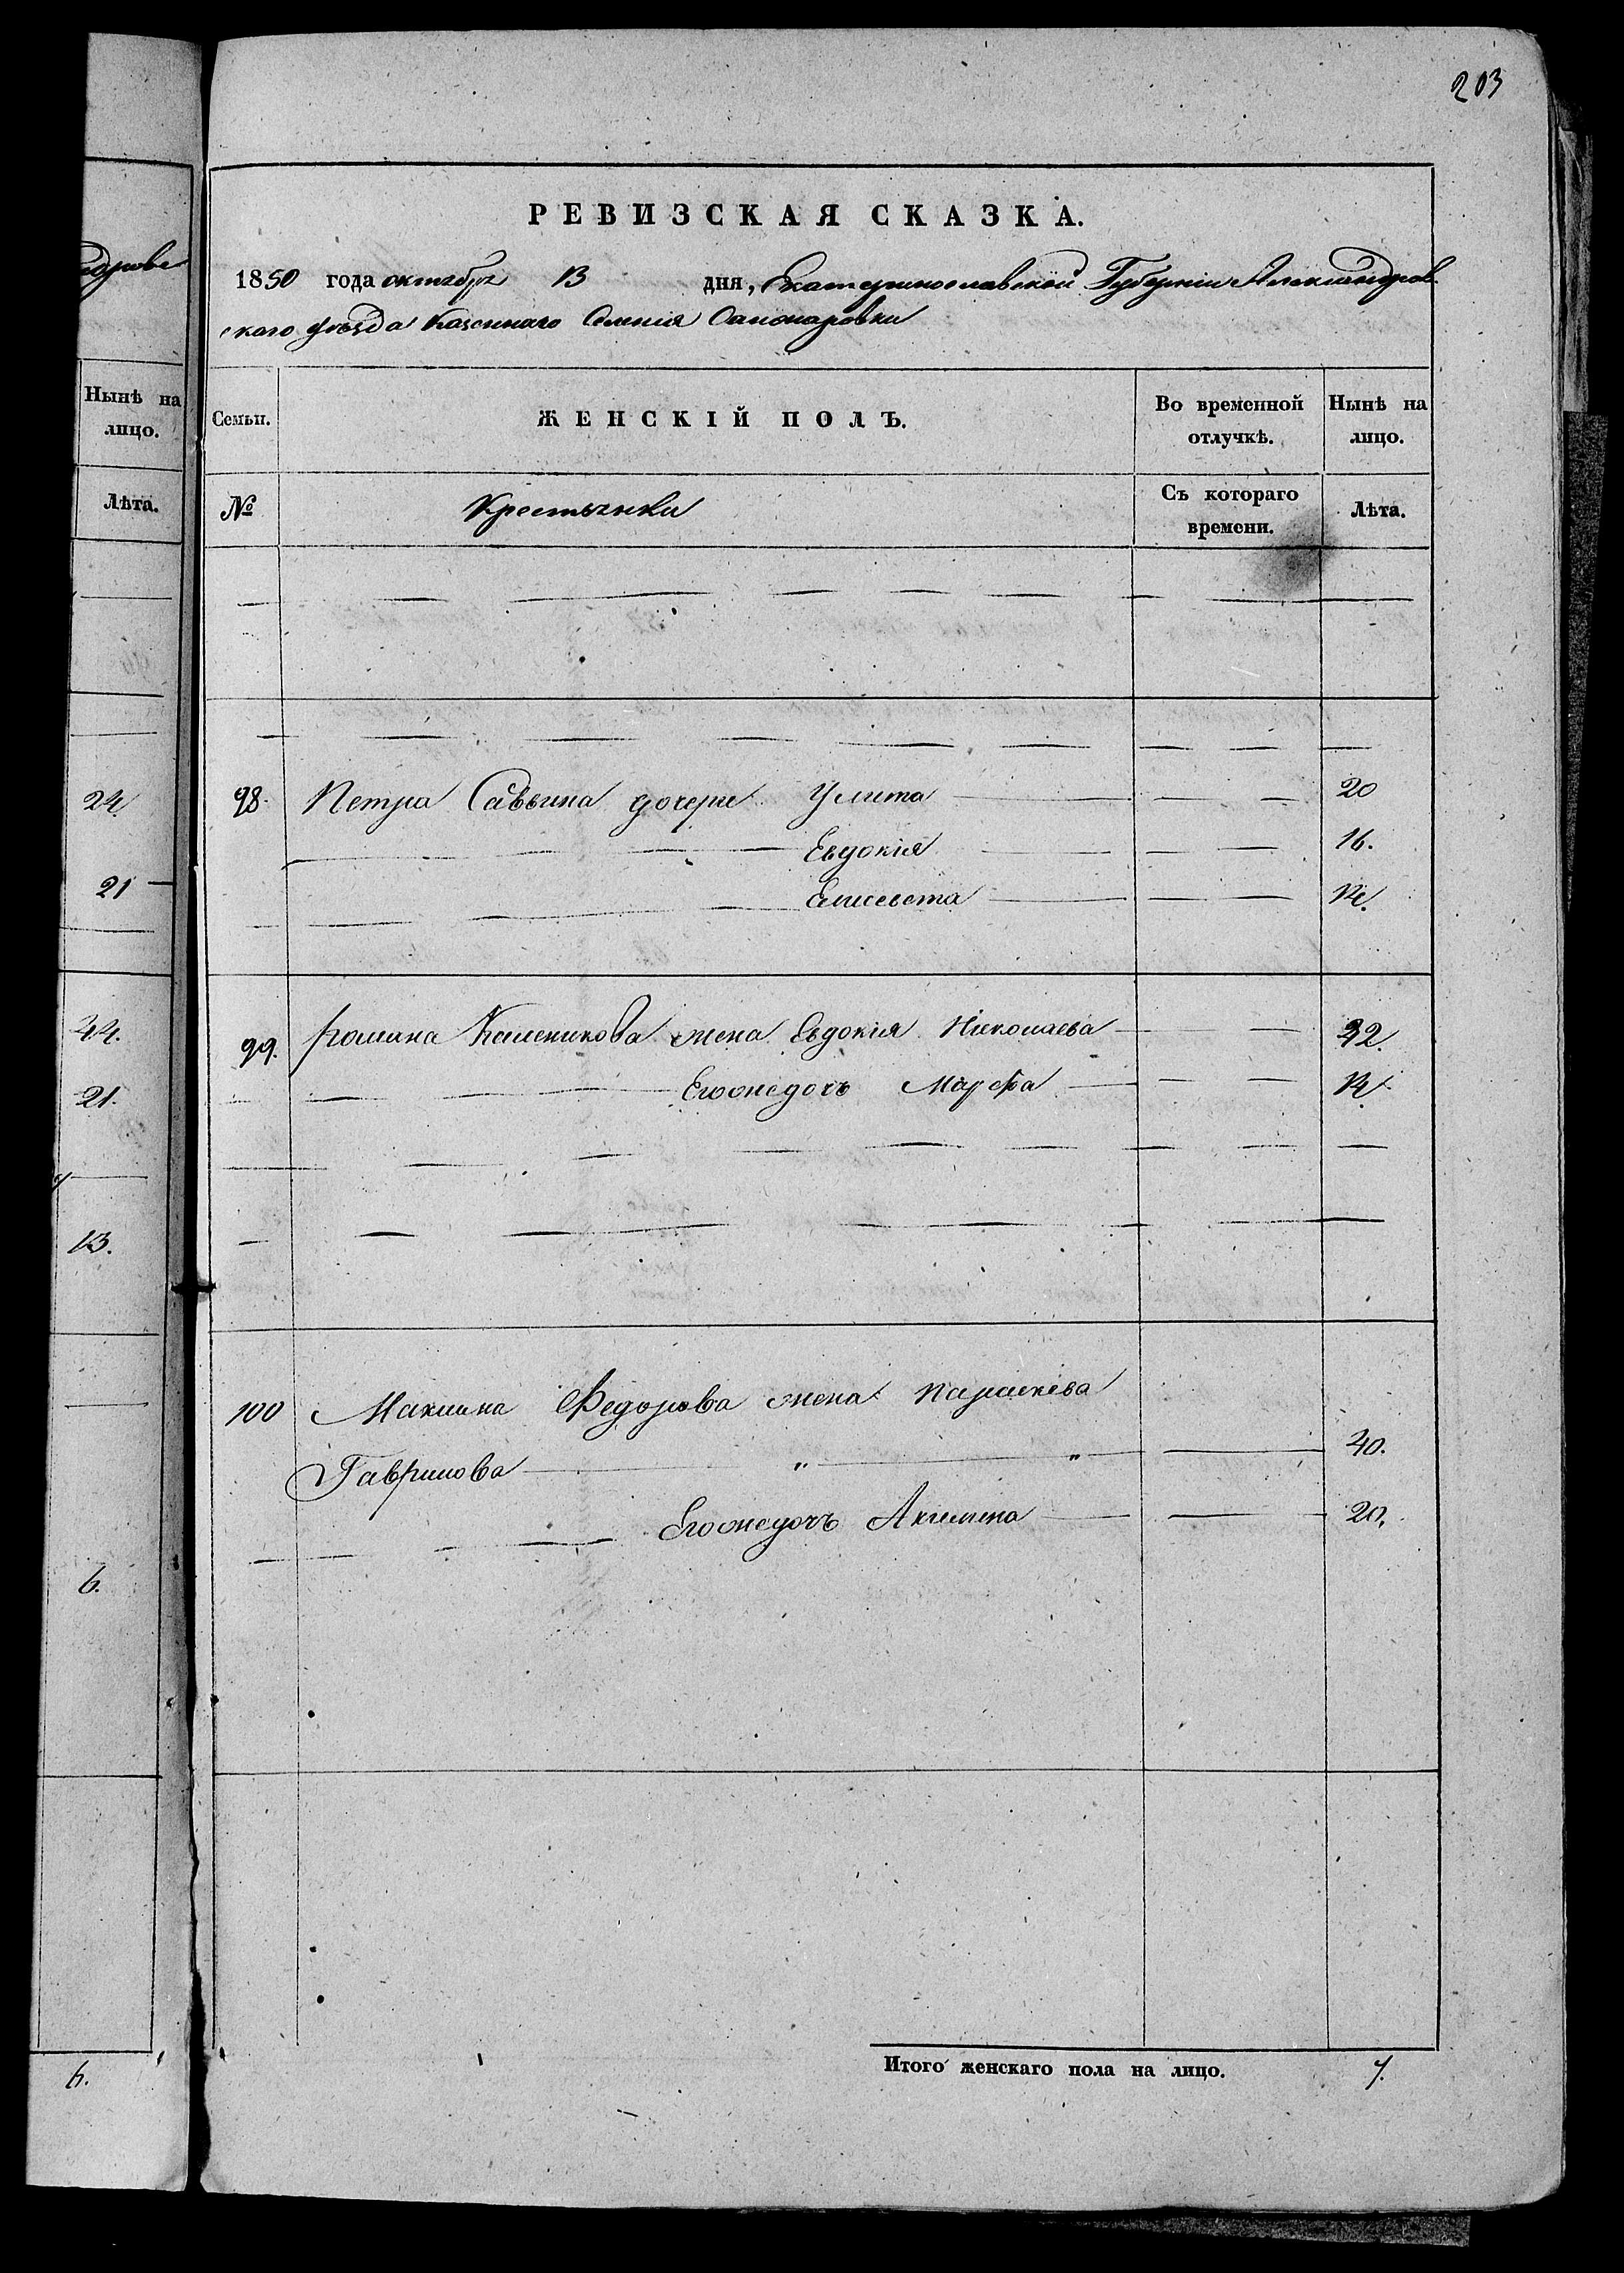 203
РЕВИЗСКАЯ СКАЗКА.
1850 года октября 13 дня, Екатеринославской Губернiи Александров
скаго уѣзда Казеннаго Селенiя Санжаровки
Нынѣ на лицо.
Лѣта.
24
21
44.
21.
13.
6.
6.
Семьи. ЖЕНСКІЙ ПОЛЪ. Во временной отлучкѣ. Нынѣ на лицо.
№ Крестьянки Съ котораго времени. Лѣта.
98. Петра Саввина дочери Улита 20
Евдокiя 16.
Елисевета 14.
99. Романа Каленикова жена Евдокiя Николаева 42.
Егожедочь Марфа 14.
100 Макима Федорова жена Параскева
Гаврилова " " 40.
Егожедочь Акилина 20.
Итого женскаго пола на лицо. 7.